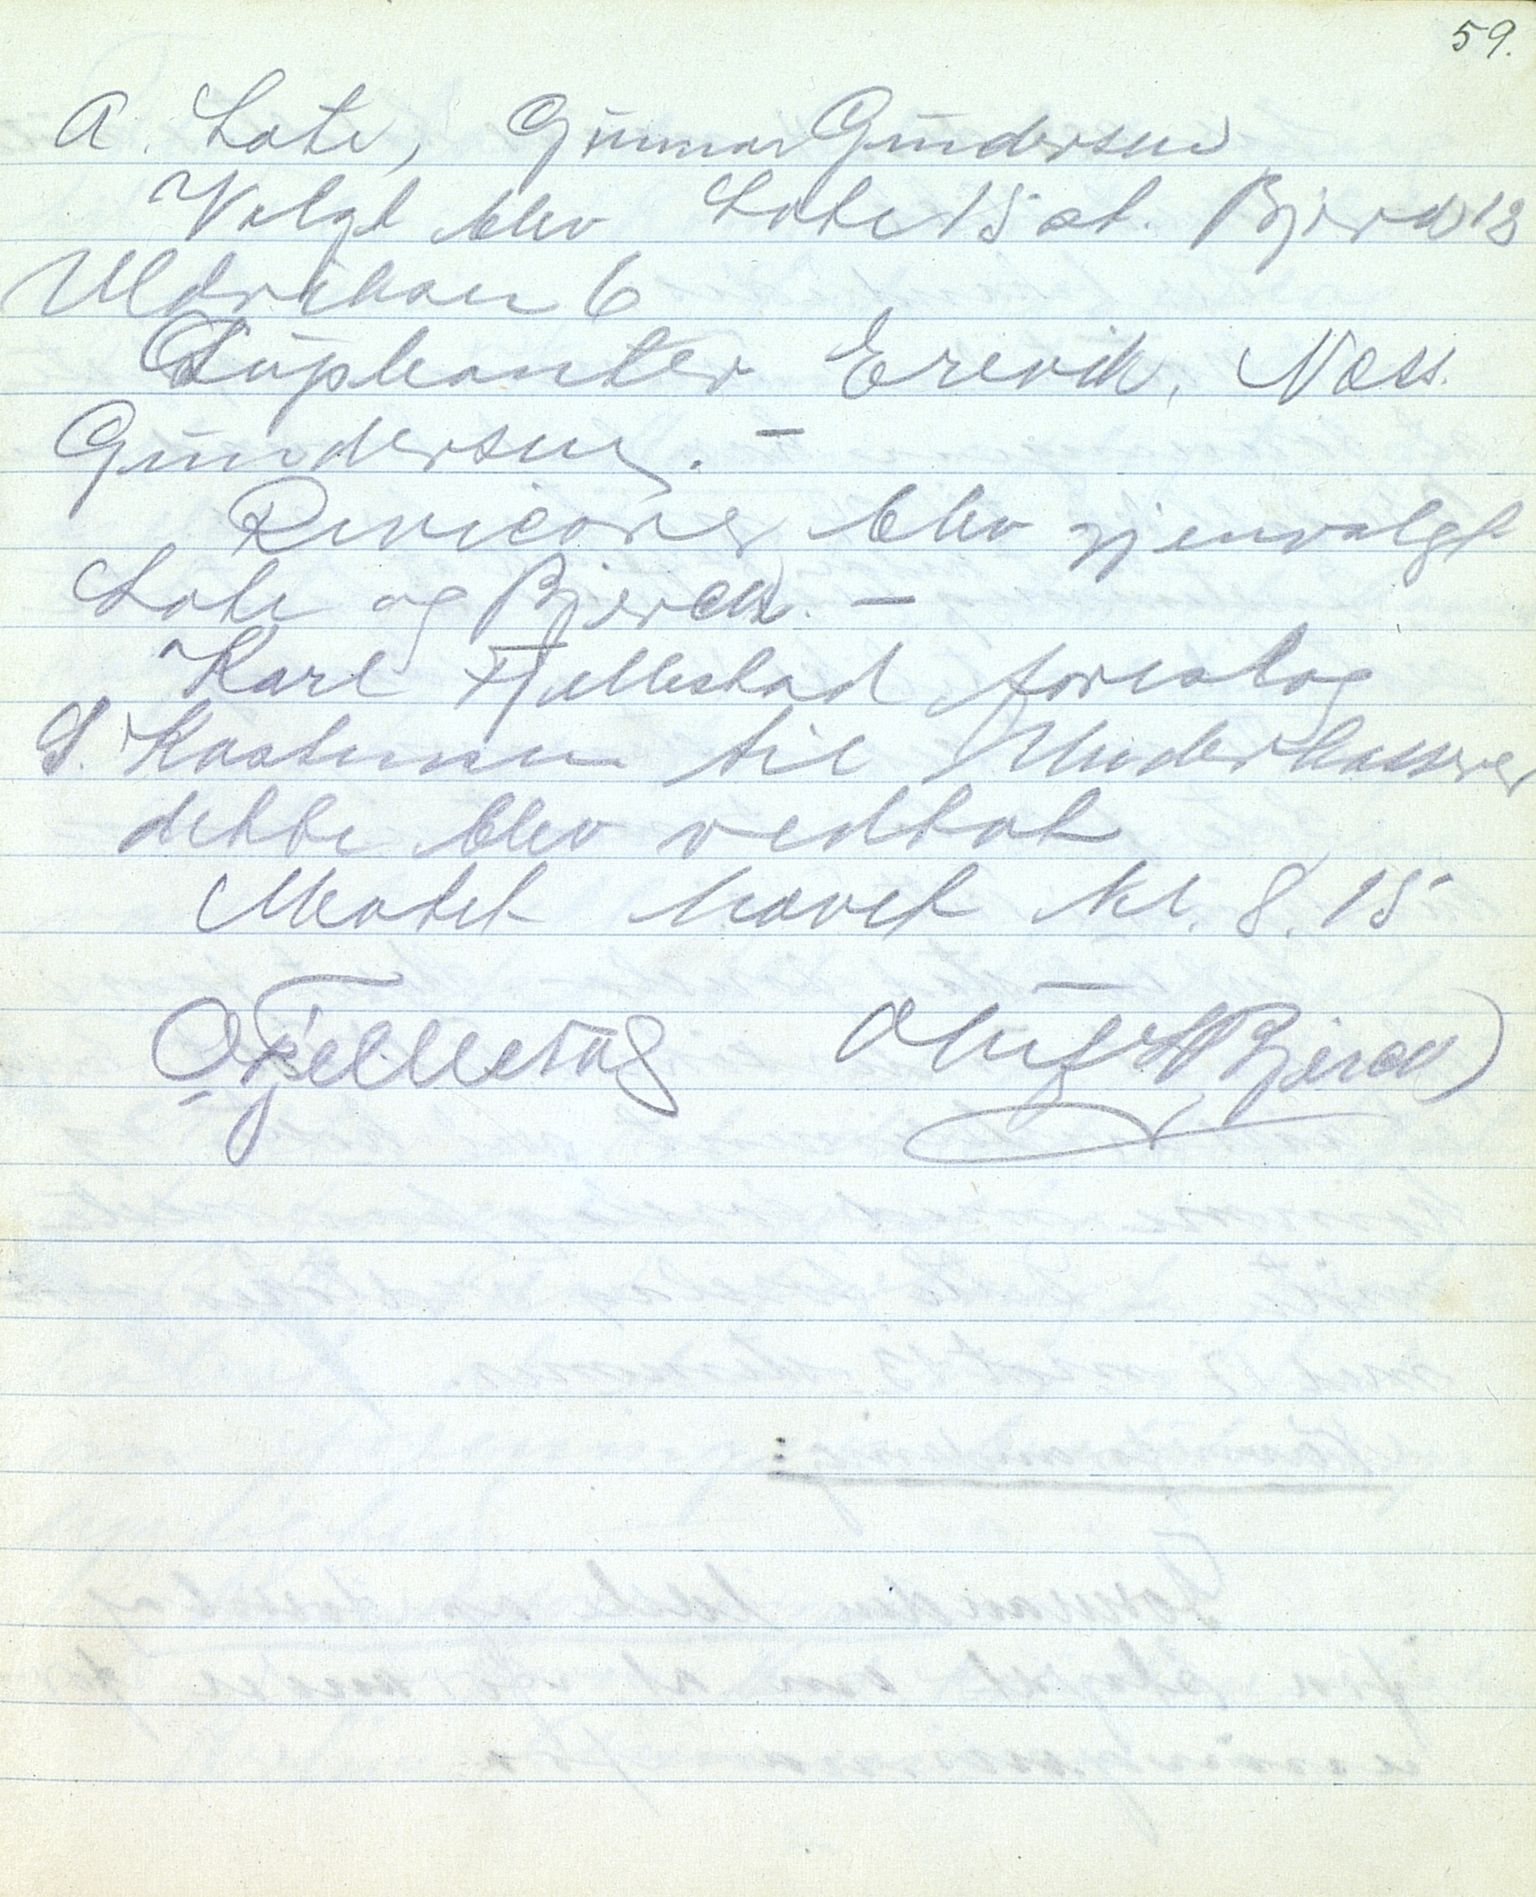 59.
A. Lote, Gunnar Gundersen
Valgt blev Lote 15 st. Bjerck 12
Uldriksen 6
Suplanter Crevik, Næss.
Gundersen. —
Revicorer blev gjenvalgt
Lote og Bjerck. —
Karl Fjellestad foreslog
S. Kastunnen til Underkasserer
dette blev vedtat
Møtet hævet kl. 8.15
O Fjellestad Oluf H Bjerck